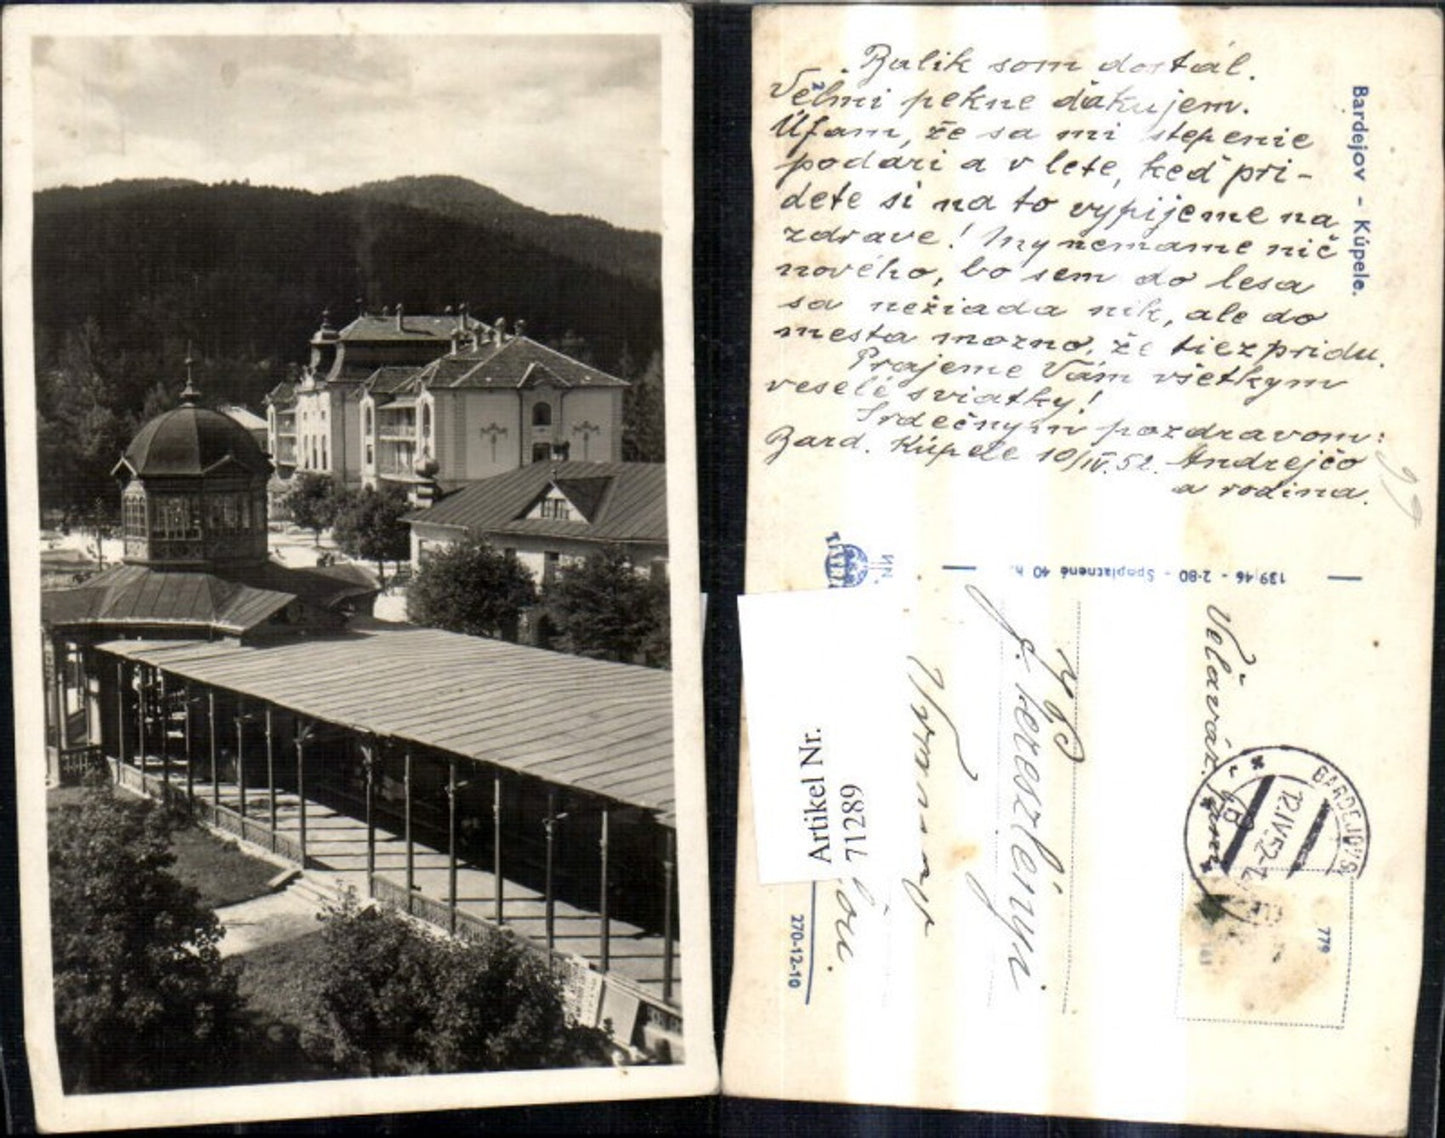 Balik som dostal.
Veľmi pekne ďakujem.
Úfam, že sa mi štepenie
podari a v lete, keď pri-
dete si na to vypijeme na
zdrave! My nemame nič
nového, bo sem do lesa
sa nežiada nik, ale do
mesta možno, že tiež pridu.
Prajeme Vám všetkym
veselé sviatky!
Srdečnym pozdravom:
Bard. Kúpele 10/IV.52. Andrejčo
a rodina.
Bardejov - Kúpele.
139/46 - 2·80 - Spoplatnené 40 h.
BARDEJOV
12.IV.52
779
Vranov
Artikel Nr.
71289
270-12-10